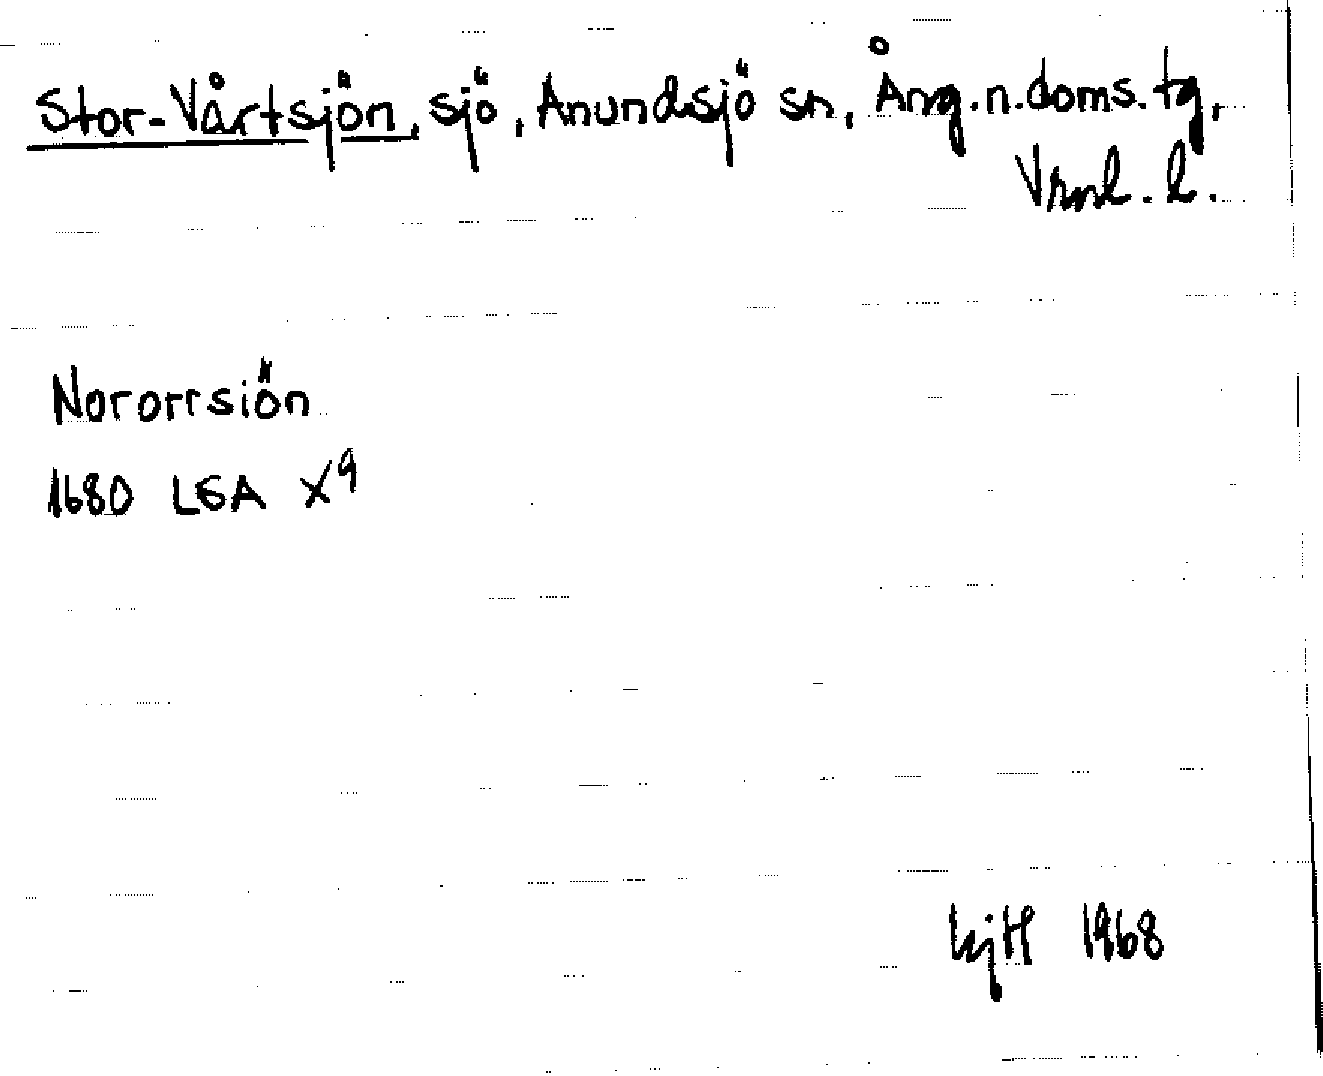 Stor-Vårtsjön, sjö, Anundsjö sn, Ång.n.doms.tg,
Vrnl. l.
Nororrsiön
1680 LSA X9
1968